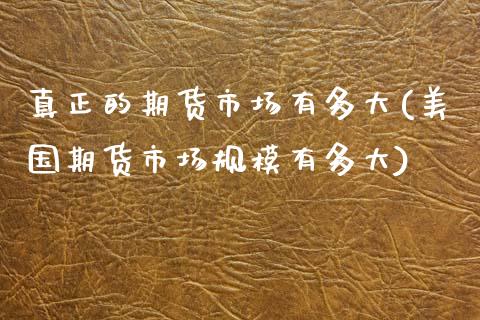 真正的期货市场有多大(美
国期货市场规模有多大)